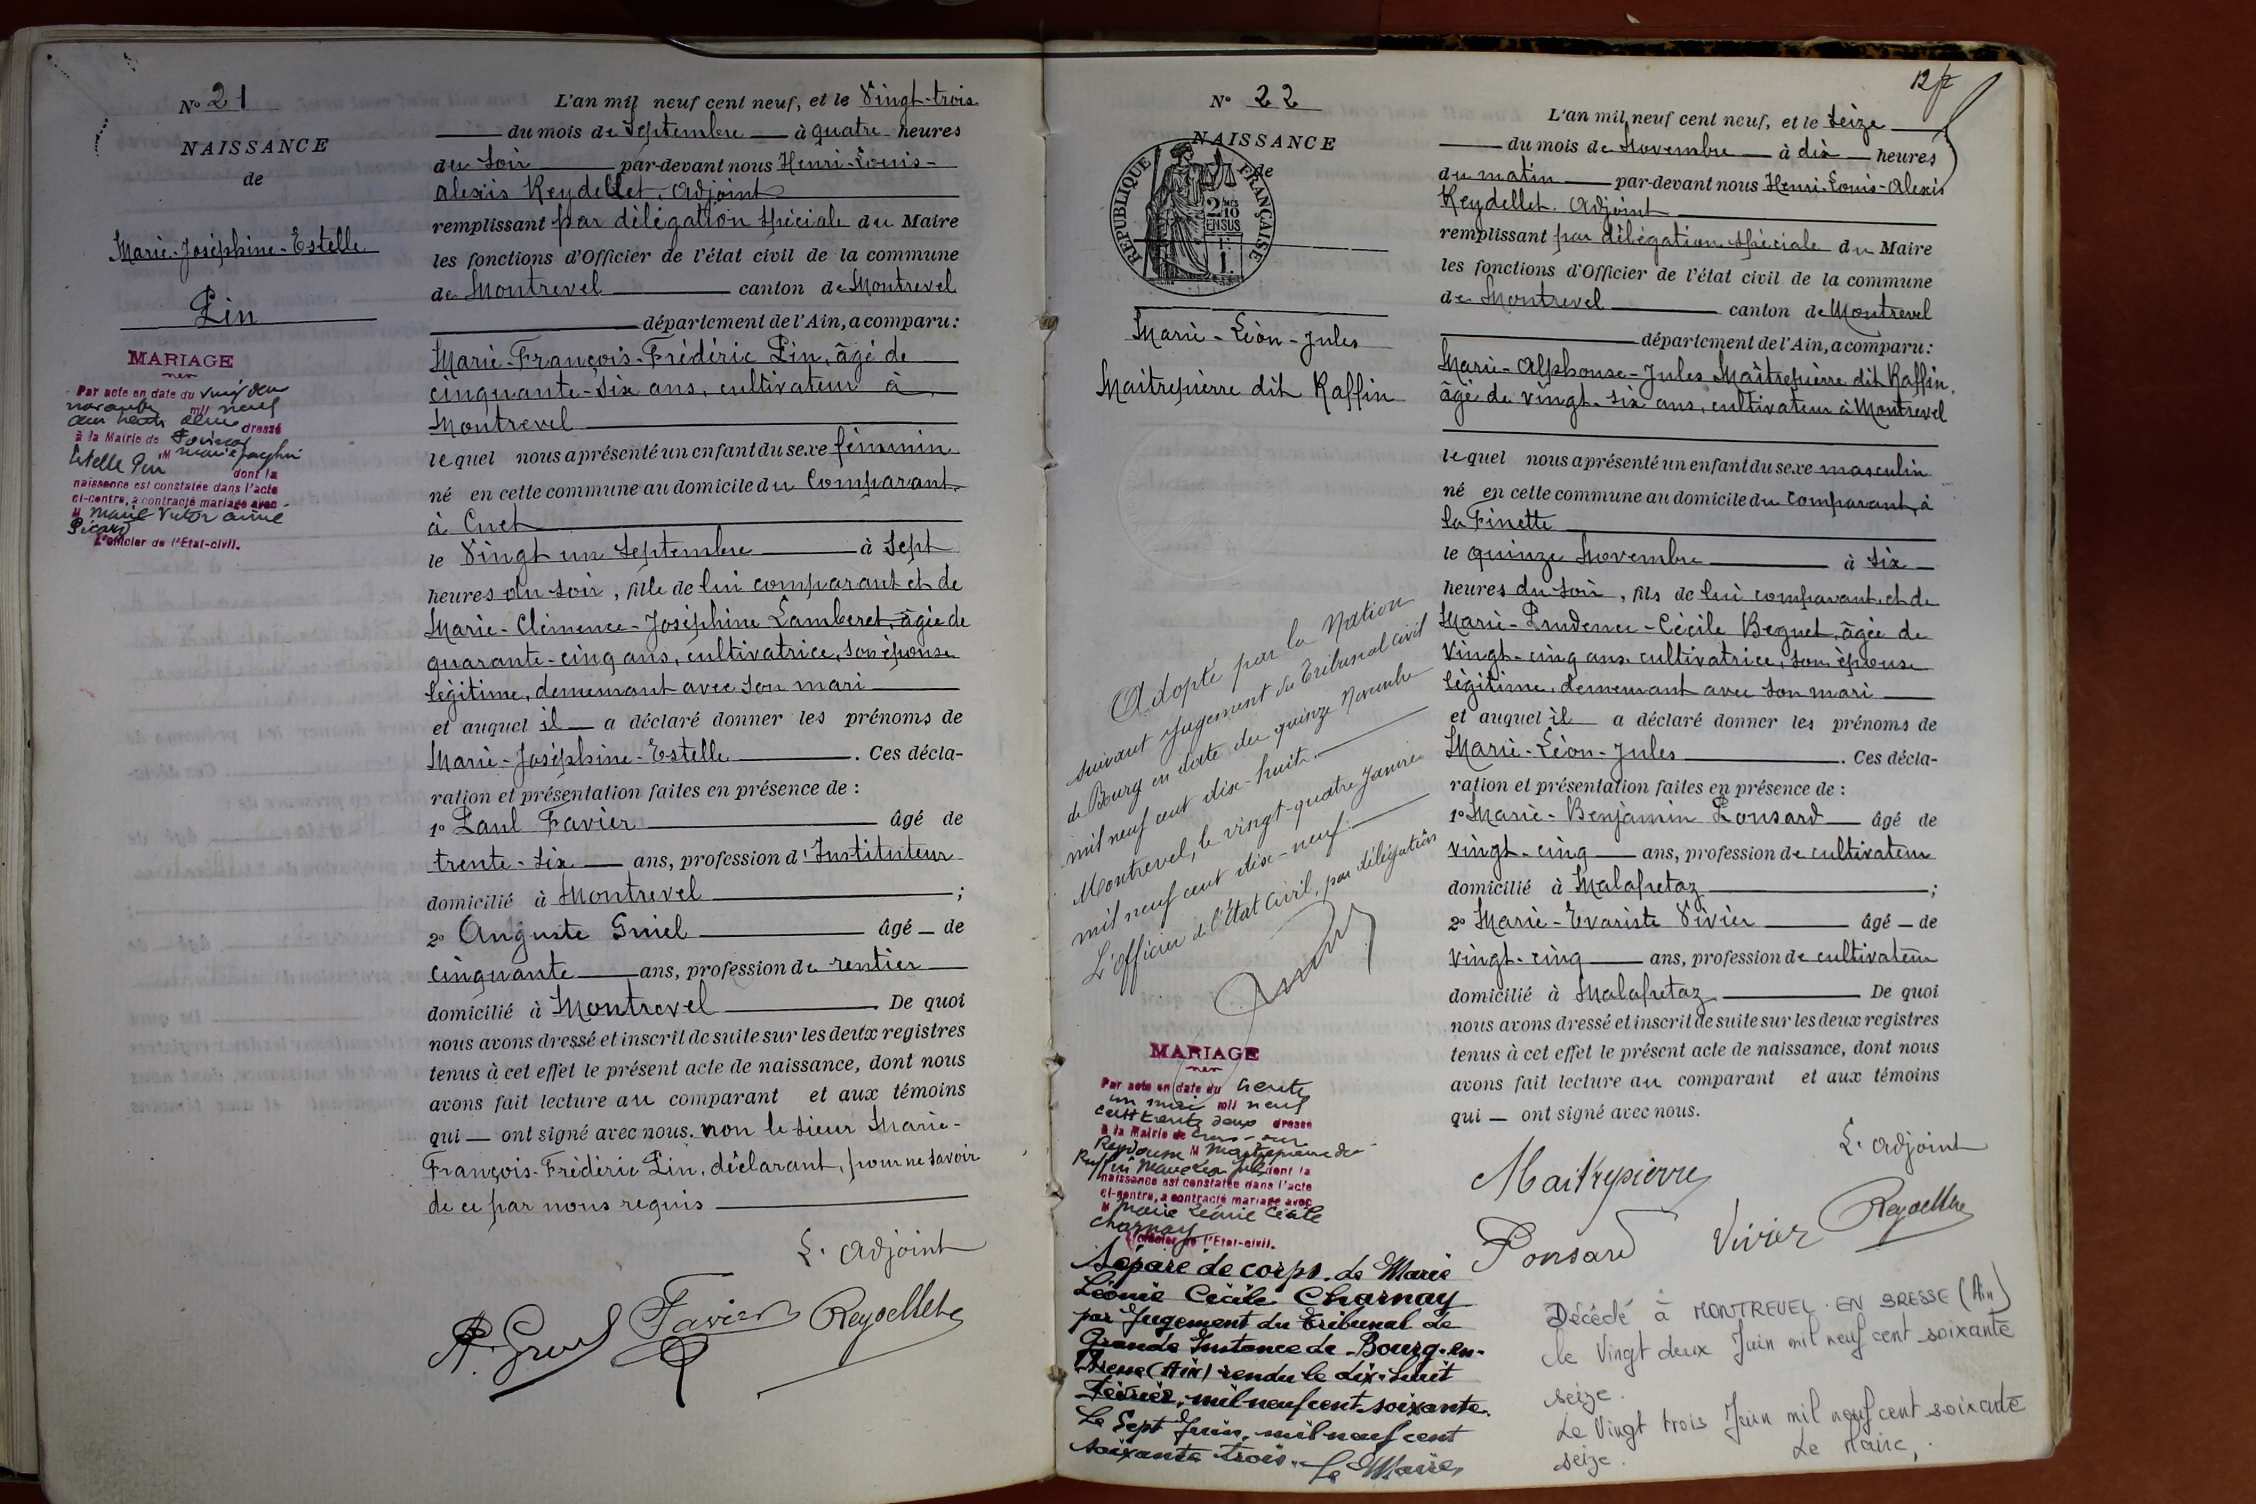 N° 21
NAISSANCE
de
Marie-Joséphine-Estelle
Pin
MARIAGE
Par acte en date du vingt deux
novembre mil neuf
cent trente deux dressé
à la Mairie de
M Marie Josephine
Estelle Pin dont la
naissance est constatée dans l'acte
ci-contre, a contracté mariage avec
M Marie Victor Aimé
Picard
L'officier de l'Etat-civil.
L'an mil neuf cent neuf, et le Vingt-trois
du mois de Septembre à quatre heures
du soir par-devant nous Henri-Louis-
Alexis Reydellet, Adjoint
remplissant par délégation spéciale du Maire
les fonctions d'Officier de l'état civil de la commune
de Montrevel canton de Montrevel
département de l'Ain, a comparu :
Marie-François-Frédéric Pin, âgé de
cinquante-six ans, cultivateur à
Montrevel
lequel nous a présenté un enfant du sexe féminin
né en cette commune au domicile du Comparant,
à Cuet
le Vingt un Septembre à Sept
heures du soir, fille de lui comparant et de
Marie-Clémence-Joséphine Lamberet, âgée de
quarante-cinq ans, cultivatrice, son épouse
légitime, demeurant avec son mari
et auquel il a déclaré donner les prénoms de
Marie-Joséphine-Estelle . Ces décla-
ration et présentation faites en présence de :
1° Paul Favier âgé de
trente-six ans, profession d'Instituteur
domicilié à Montrevel ;
2° Auguste Gruel âgé de
cinquante ans, profession de rentier
domicilié à Montrevel De quoi
nous avons dressé et inscrit de suite sur les deux registres
tenus à cet effet le présent acte de naissance, dont nous
avons fait lecture au comparant et aux témoins
qui ont signé avec nous, non le sieur Marie-
François-Frédéric Pin, déclarant, pour ne savoir
de ce par nous requis
L'adjoint
A. Gruel Favier Reydellet
12
N° 22
NAISSANCE
de
REPUBLIQUE FRANÇAISE
2/10 EN SUS
Marie-Léon-Jules
Maitrepierre dit Raffin
Adopté par la Nation
suivant jugement du Tribunal civil
de Bourg en date du quinze Novembre
mil neuf cent dix-huit.
Montrevel, le vingt-quatre Janvier
mil neuf cent dix-neuf.
L'officier de l'état civil, par délégation
MARIAGE
Par acte en date du trente
un mai mil neuf
cent trente deux dressé
à la Mairie de Cras-sur
Reyssouze M Maitrepierre dit
Raffin Marie Léon Jules dont la
naissance est constatée dans l'acte
ci-contre, a contracté mariage avec
M Marie Léonie Cécile
Charnay
L'officier de l'Etat-civil.
Séparé de corps de Marie
Léonie Cécile Charnay
par Jugement du Tribunal de
Grande Instance de Bourg-en-
Bresse (Ain) rendu le dix-huit
Février, mil neuf cent soixante.
Le Sept Juin, mil neuf cent
soixante trois. Le Maire,
L'an mil neuf cent neuf, et le seize
du mois de Novembre à dix heures
du matin par-devant nous Henri-Louis-Alexis
Reydellet. Adjoint
remplissant par délégation spéciale du Maire
les fonctions d'Officier de l'état civil de la commune
de Montrevel canton de Montrevel
département de l'Ain, a comparu :
Marie-Alphonse-Jules Maîtrepierre dit Raffin,
âgé de vingt-six ans, cultivateur à Montrevel
lequel nous a présenté un enfant du sexe masculin
né en cette commune au domicile du comparant, à
la Finette
le quinze Novembre à six
heures du soir, fils de lui comparant et de
Marie-Prudence-Cécile Beguet, âgée de
vingt-cinq ans, cultivatrice, son épouse
légitime, demeurant avec son mari
et auquel il a déclaré donner les prénoms de
Marie-Léon-Jules . Ces décla-
ration et présentation faites en présence de :
1° Marie-Benjamin Ponsard âgé de
vingt-cinq ans, profession de cultivateur
domicilié à Malafretaz ;
2° Marie-Evariste Vivier âgé de
vingt-cinq ans, profession de cultivateur
domicilié à Malafretaz De quoi
nous avons dressé et inscrit de suite sur les deux registres
tenus à cet effet le présent acte de naissance, dont nous
avons fait lecture au comparant et aux témoins
qui ont signé avec nous.
L'adjoint
Maitrepierre
Ponsard Vivier Reydellet
Décédé à MONTREVEL-EN-BRESSE (Ain)
le Vingt deux Juin mil neuf cent soixante
seize.
Le Vingt trois Juin mil neuf cent soixante
seize. Le Maire,